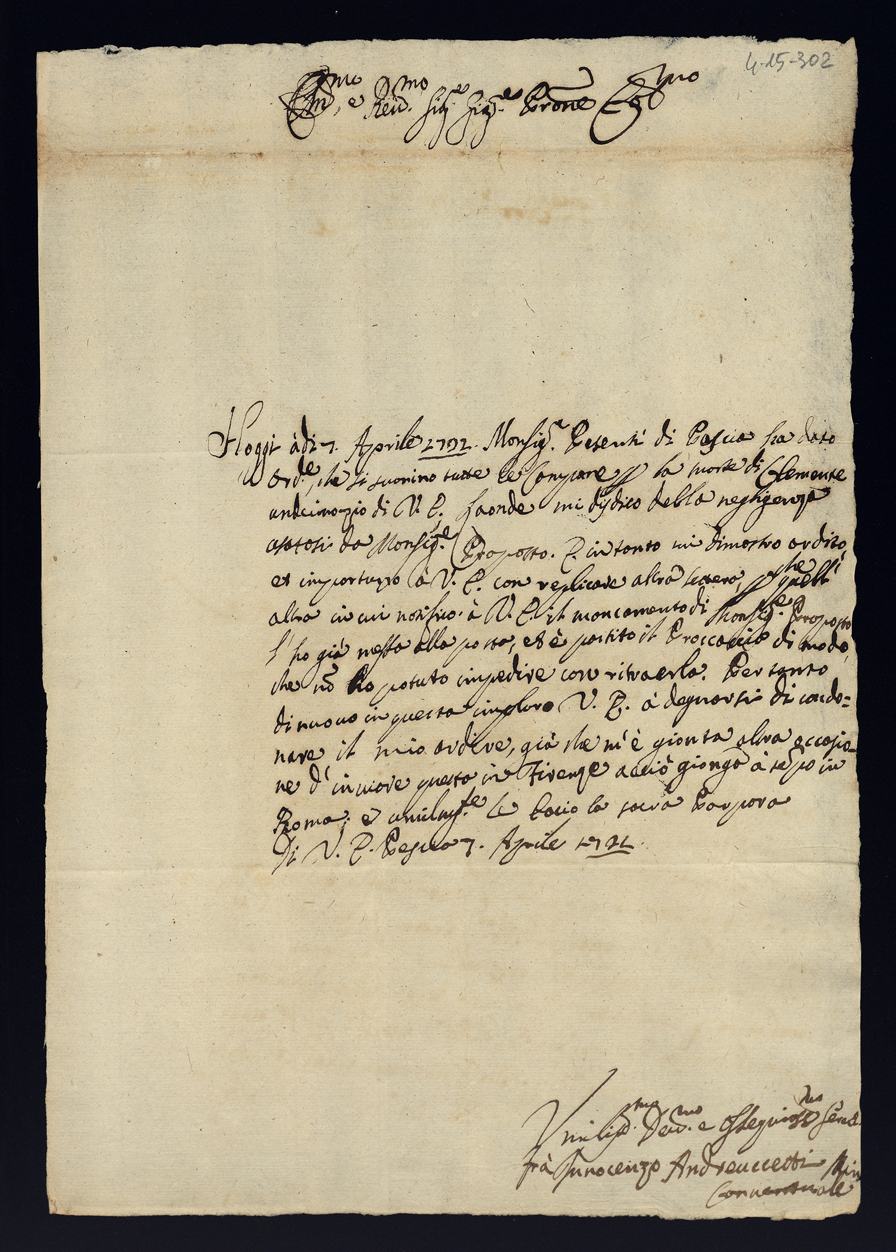 4-15-302
Em.mo, e Rev.mo Sig.e Sig.e Prone Col.mo
Hoggi à di 7. Aprile 1721. Monsig.e Pesenti di Pescia ha dato
ord.e, che si suonino tutte le Campane p la morte di Clemente
undecimo zio di V. E. Laonde mi disdico della negligenza
usatasi da Monsig.e Proposto. E intanto mi dimostro ardito,
et importuno à V. E. con replicare altra lettera, p che quell'
altra in cui notifico à V. E. il mancamento di Monsig.e Proposto
l'ho già messa alla posta, et è partito il Proccaccio di modo,
che nõ ho potuto impedire con ritraerla. Per tanto
di nuovo in questa imploro V. E. à degnarsi di condo=
nare il mio ardire, già che m'è gionta altra occasio=
ne d'inviare questa in Firenze acciò gionga à tẽpo in
Roma; e umilm.te le bacio la sacra Porpora
Di V. E. Pescia 7. Aprile 1721.
Umilis.mo Dev.mo e Ossequios.mo Serv.
frà Innocenzo Andreuccetti Min
Conventuale